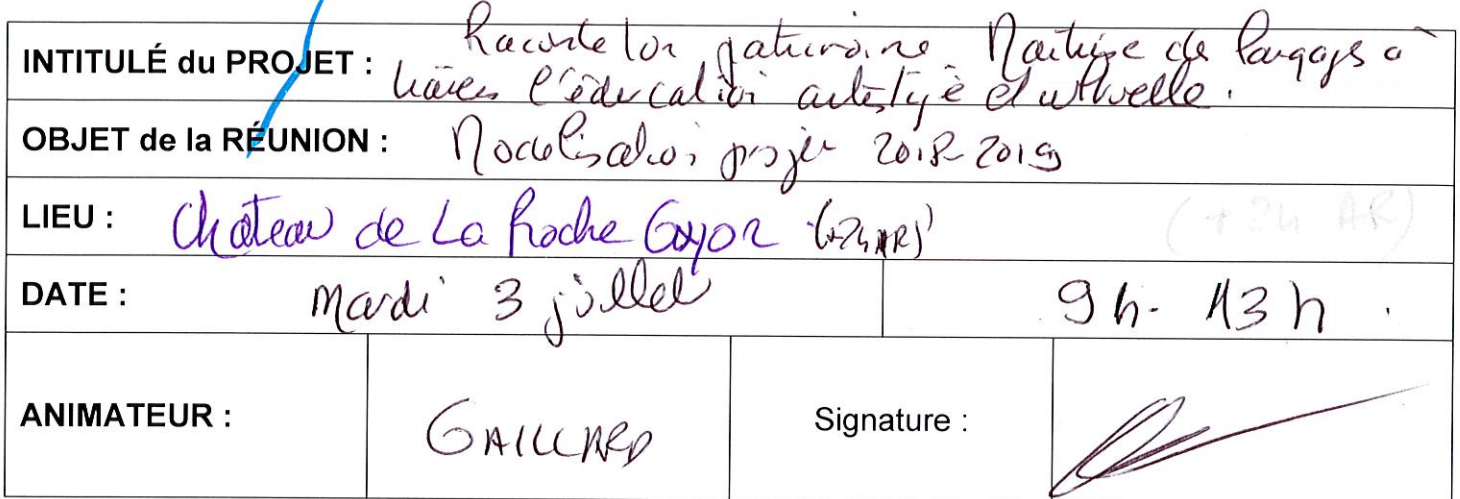 INTITULÉ du PROJET : Raconte ton patrimoine. Maîtrise de langage à
travers l'éducation artistique et culturelle.
OBJET de la RÉUNION : Modélisation projet 2018-2019
LIEU : Château de La Roche Guyon (+2h AR) (+2h AR)
DATE : Mardi 3 juillet 9h - 13h.
ANIMATEUR : GAILLARD Signature :